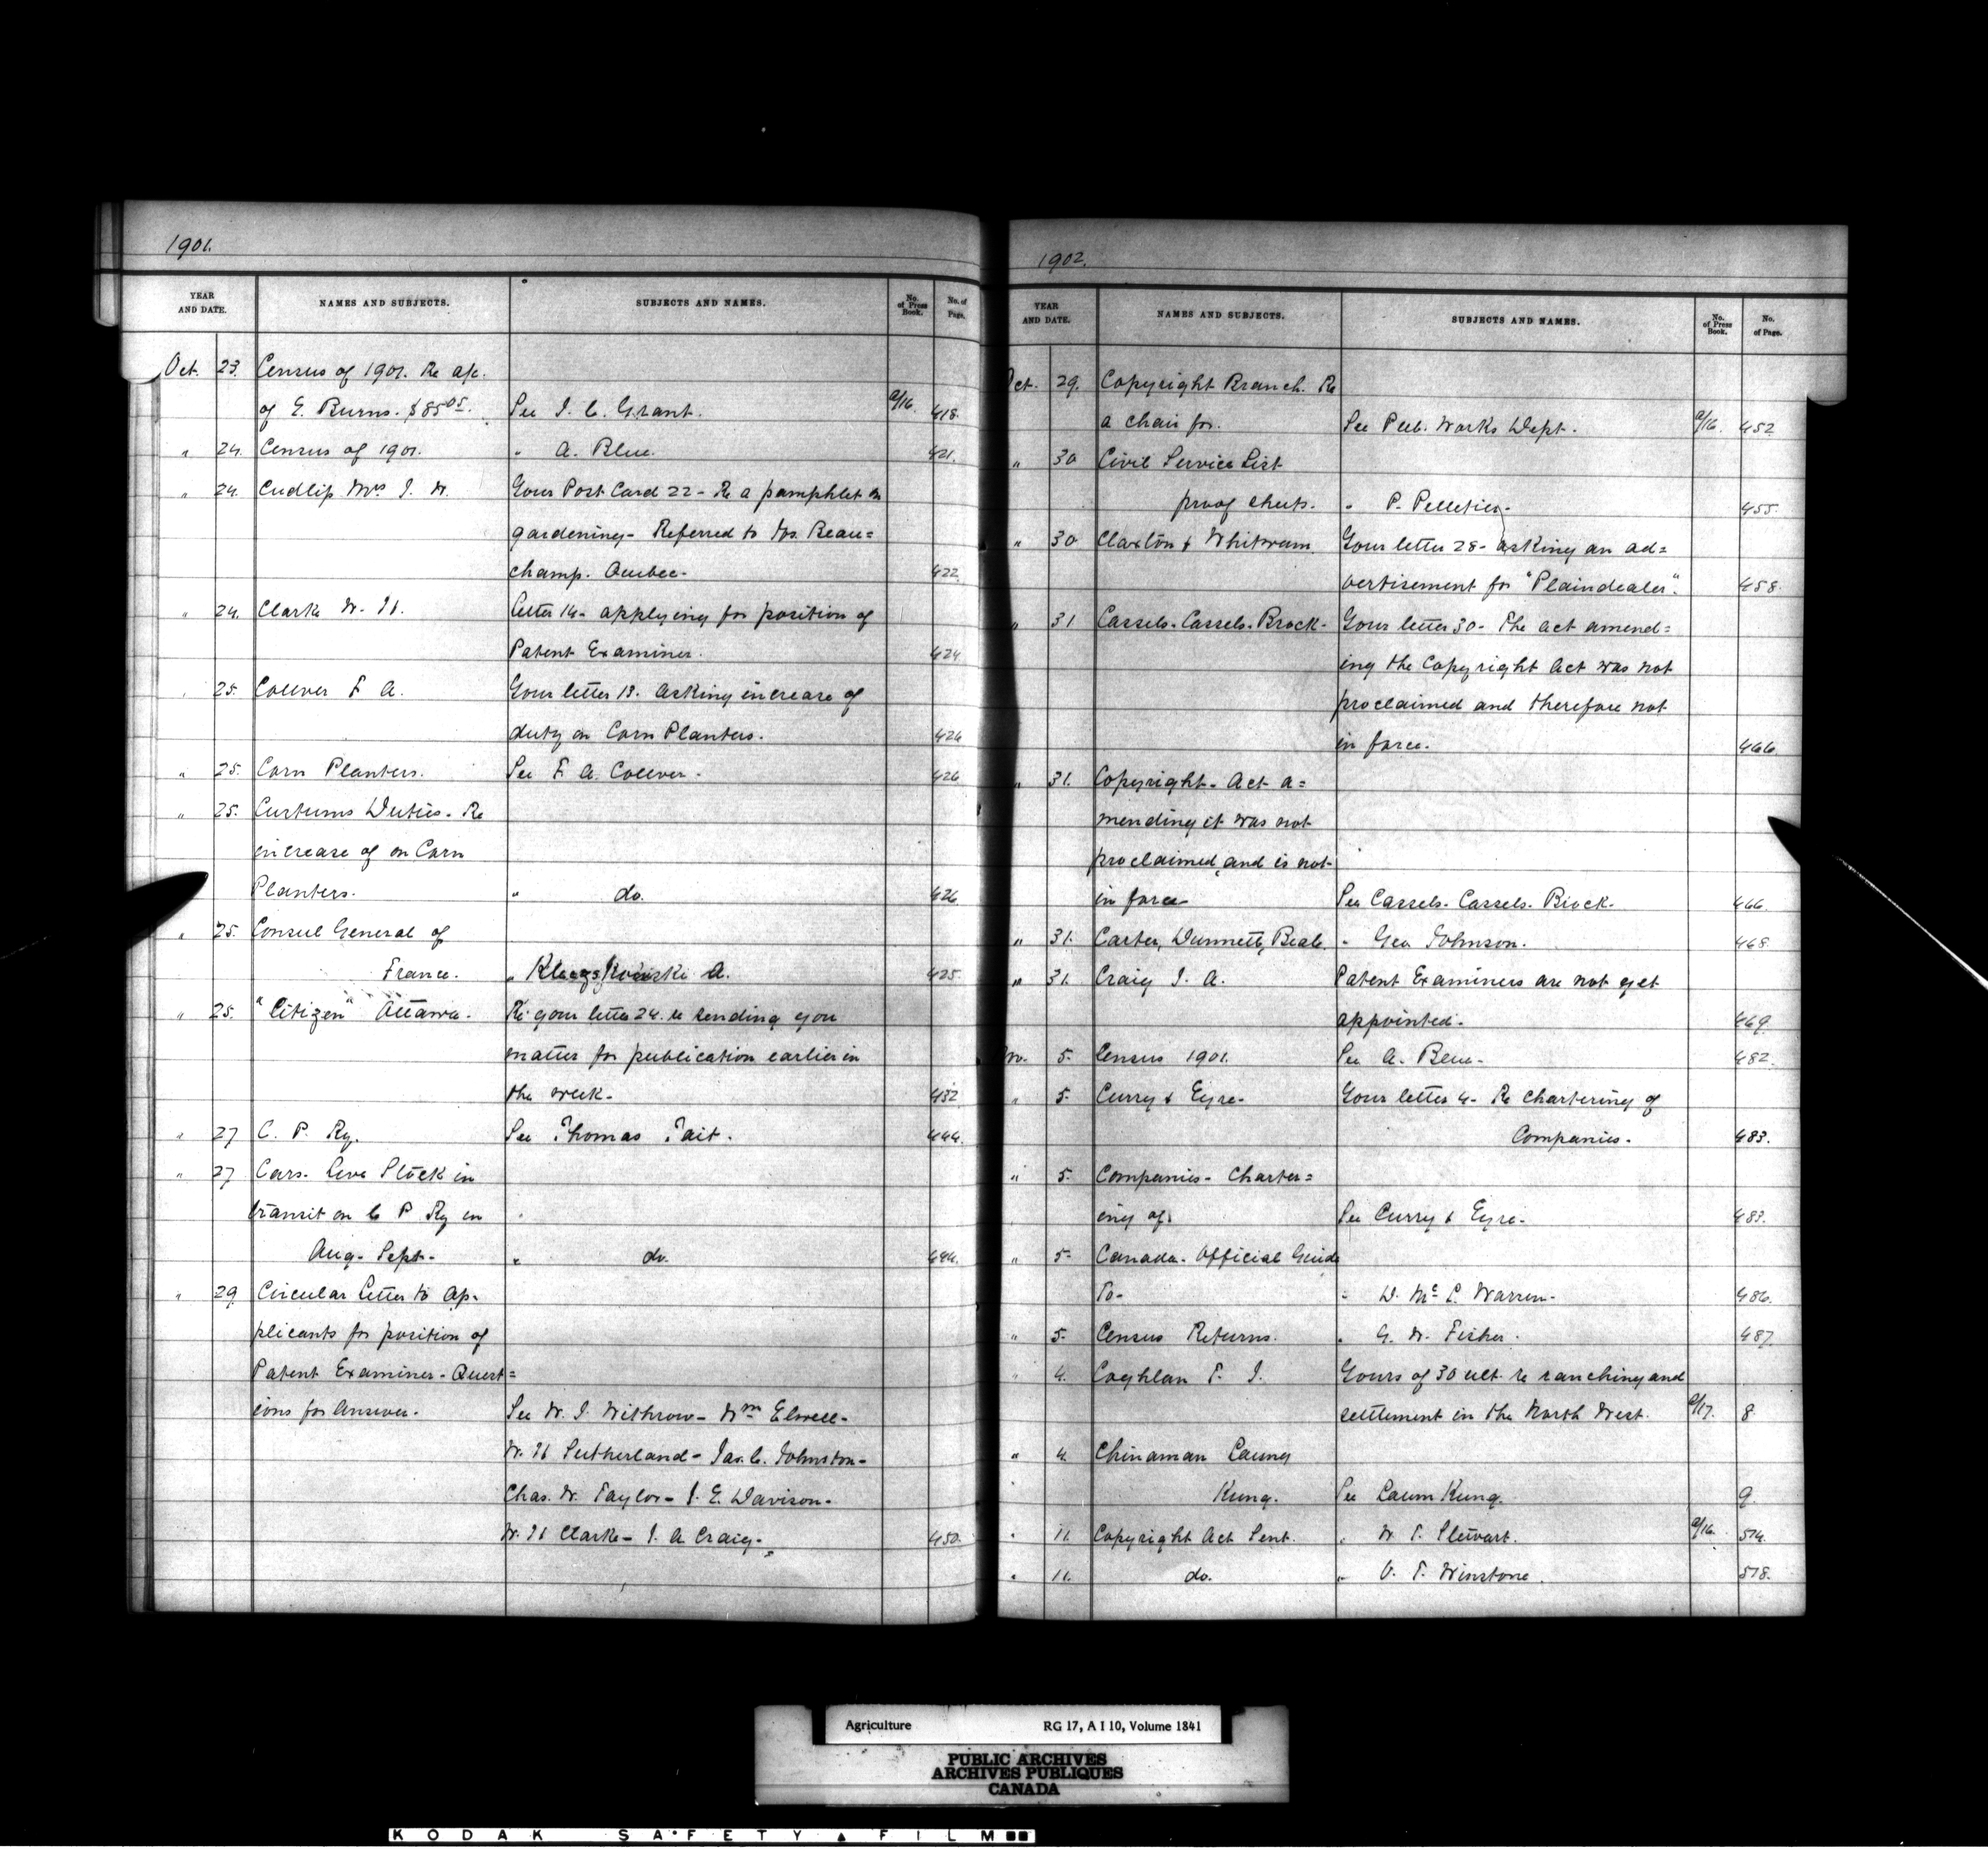 1901.
YEAR AND DATE. NAMES AND SUBJECTS. SUBJECTS AND NAMES. No. of Press Book. No. of Page.
Oct. 23. Census of 1901. Re a/c.
of E. Burns. $85.05. See J. C. Grant. a/16. 418.
" 24. Census of 1901. " A. Blue. 421.
" 24. Cudlip Mrs J. W. Your Post Card 22 - Re a pamphlet on
gardening - Referred to Jos. Beau=
champ. Quebec. 422
" 24. Clark W. H. Letter 14 - applying for position of
Patent Examiner. 424
" 25. Collver F A. Your letter 18. asking increase of
duty on Corn Planters. 426
" 25. Corn Planters. See F. A. Collver. 426
" 25. Customs Duties - Re
increase of on Corn
Planters. " do. 426
" 25. Consul General of
France. " A. 425.
" 25. "Citizen" Ottawa. Re your letter 24. re sending you
matter for publication earlier in
the week. 432
" 27 C. P. Ry. See Thomas Tait. 444.
" 27 Cars. Live Stock in
transit on C P Ry in
Aug - Sept. " do. 444.
" 29 Circular Letter to Ap-
plicants for position of
Patent Examiner - Quest=
ions for Answer. See W. J. Withrow - Wm Elwell -
W. H Sutherland - Jas. C. Johnston -
Chas. W. Taylor - J. E. Davison -
W. H Clarke - J. A Craig. 450.
1902.
YEAR AND DATE. NAMES AND SUBJECTS. SUBJECTS AND NAMES. No. of Press Book. No. of Page.
Oct. 29. Copyright Branch. Re
a chair for. See Pub. Works Dept. a/16. 452
" 30 Civil Service List
proof sheets. " P. Pelletier. 455.
" 30 Claxton & Whitwam Your letter 28 - asking an ad=
vertisement for "Plaindealer". 458.
" 31 Cassels. Cassels. Brock. Your letter 30 - The act amend=
ing the Copyright Act was not
proclaimed and therefore not
in force. 466.
" 31. Copyright - Act a=
mending it was not
proclaimed, and is not
in force See Cassels. Cassels. Brock. 466.
" 31. Carter, Dunnett, Beale. " Geo Johnson. 468.
" 31. Craig J. A. Patent Examiners are not yet
appointed. 469.
Nov. 5. Census 1901. See A. Blue. 482.
" 5. Curry & Eyre. Your letter 4 - Re Chartering of
Companies. 483.
" 5. Companies - Charter=
ing of. See Curry & Eyre. 483.
" 5. Canada. Official Guide
To. " D. Mc P. Warren. 486.
" 5. Census Returns. " G. W. Fisher. 487.
" 4. Coghlan T. J. Yours of 30 ult. re ranching and
settlement in the North West. a/17. 8.
" 4. Chinaman Laung
Kung. See Laum Kung. 9.
" 11. Copyright Act Sent. " W. T. Stewart. a/16. 514.
" 11. do. " O. T. Winstone. 518.
Agriculture RG 17, A I 10, Volume 1841
PUBLIC ARCHIVES
ARCHIVES PUBLIQUES
CANADA
KODAK SAFETY FILM